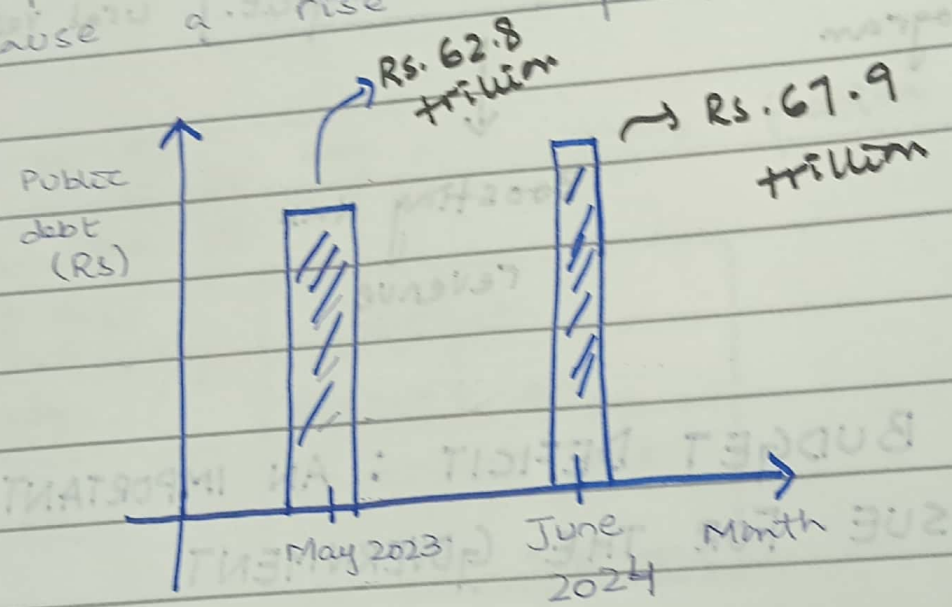 ause a rise
Rs. 62.8
trillion
Rs. 67.9
trillion
Public
debt
(Rs)
May 2023
June
2024
Month